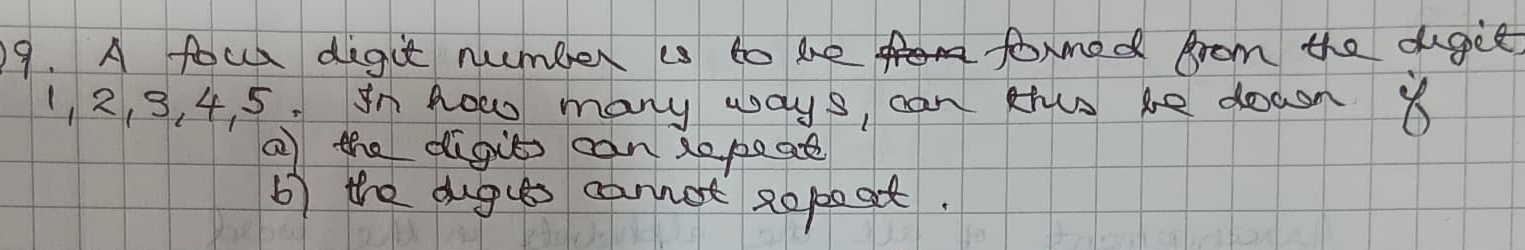 19. A four digit number is to be from formed from the digit
1, 2, 3, 4, 5. In how many ways, can this be down if
a) the digits can repeat
b) the digits cannot repeat.